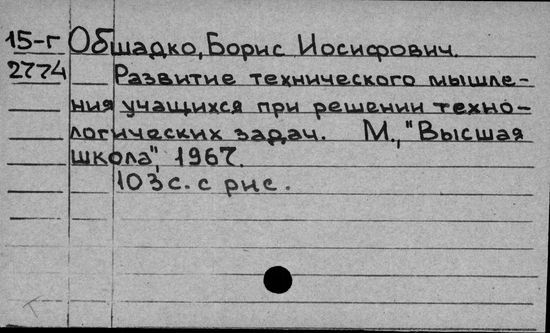 15-г Обшадко, Борис Иосифович.
2774 Развитие технического мышле-
ния учащихся при решении техно-
логических задач. М., "Высшая
школа", 1967.
103 с. с рис.